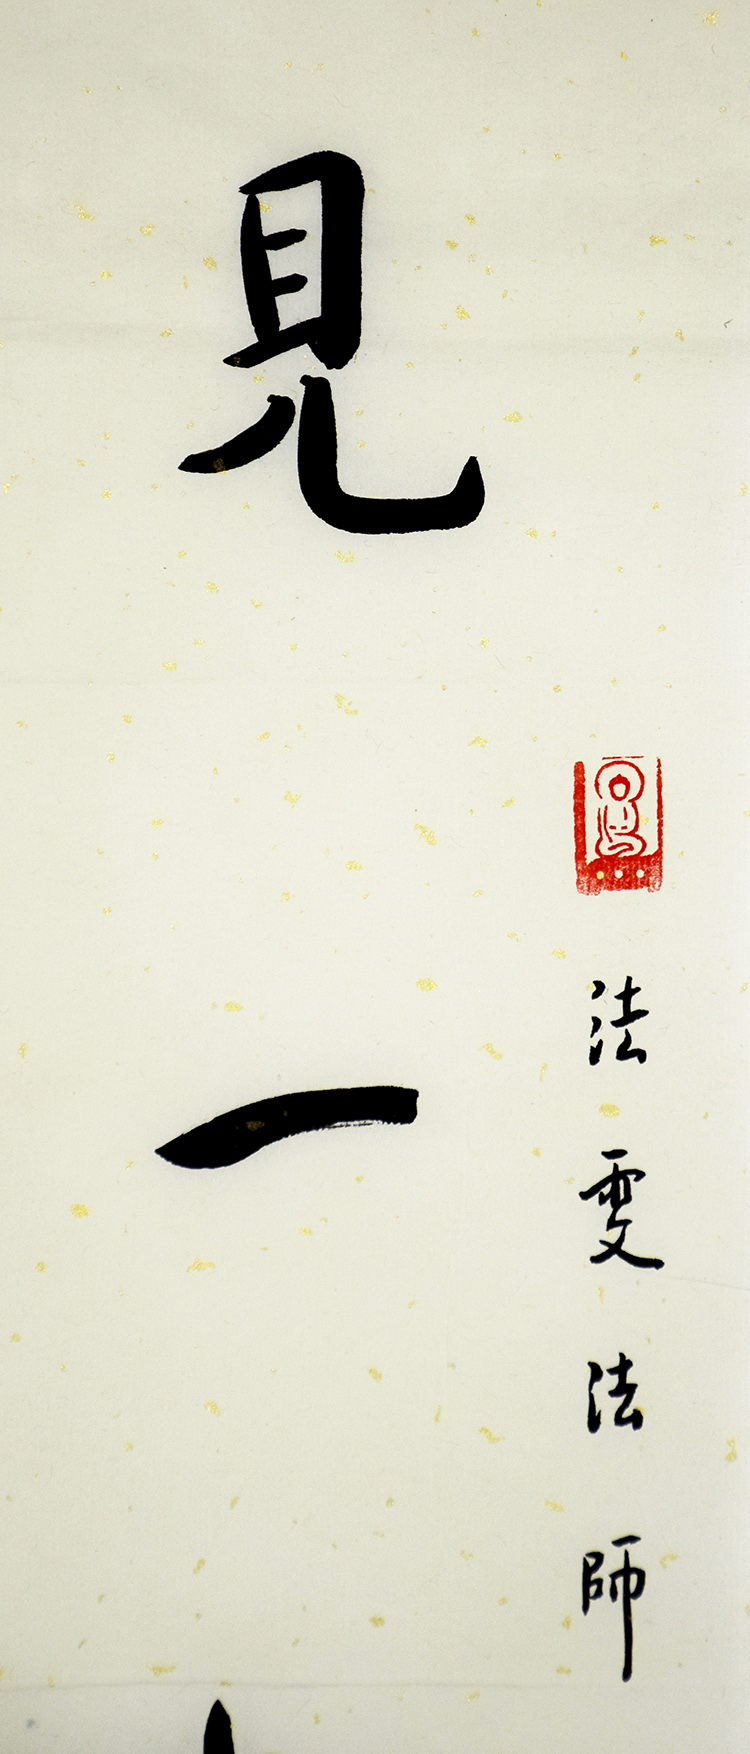 法雯法師
見一